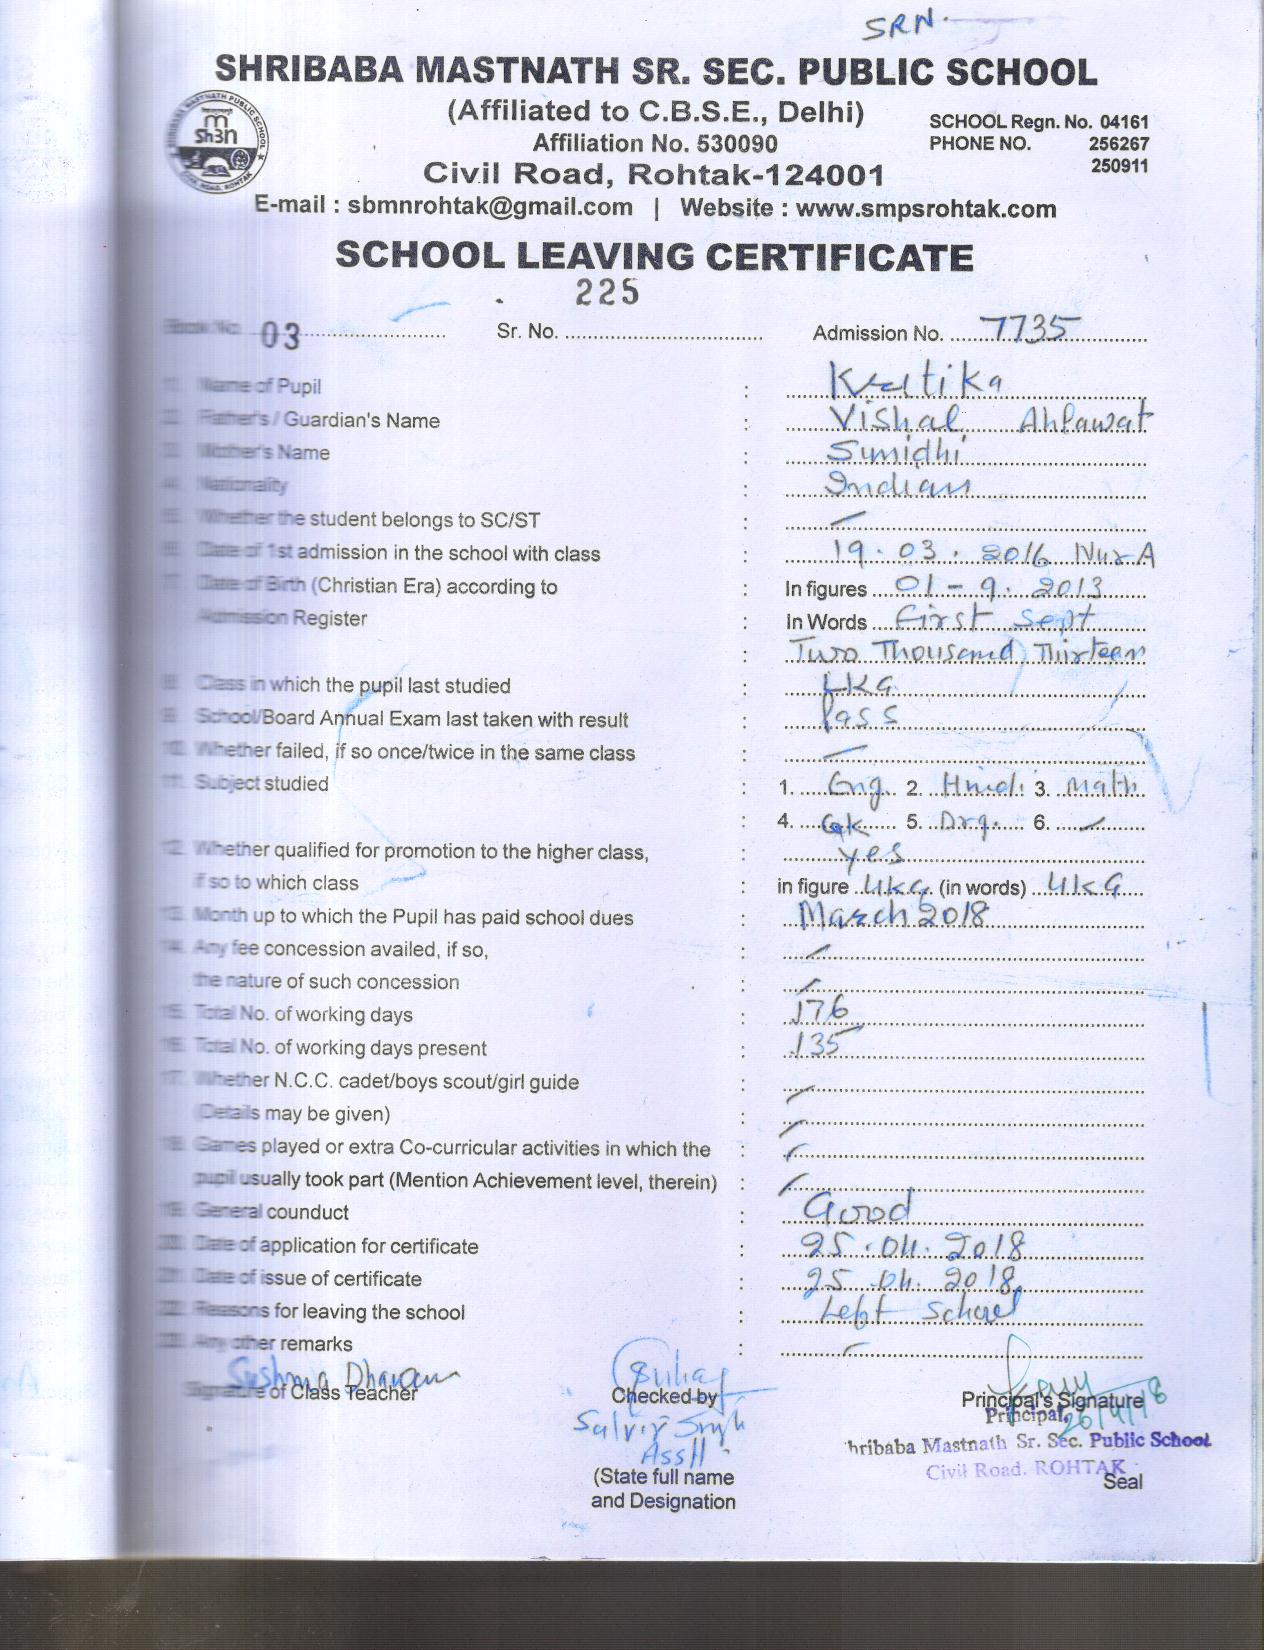 SRN.
SHRIBABA MASTNATH SR. SEC. PUBLIC SCHOOL
(Affiliated to C.B.S.E., Delhi)
Affiliation No. 530090
SCHOOL Regn. No. 04161
PHONE NO. 256267
250911
Civil Road, Rohtak-124001
E-mail : sbmnrohtak@gmail.com | Website : www.smpsrohtak.com
SCHOOL LEAVING CERTIFICATE
225
Book No. 03 Sr. No. Admission No. 7735
1. Name of Pupil :
2. Father's / Guardian's Name : Vishal Ahlawat
3. Mother's Name :
4. Nationality : Indian
5. Whether the student belongs to SC/ST :
6. Date of 1st admission in the school with class : 19.03.2016 Nur A
7. Date of Birth (Christian Era) according to : In figures 01-9.2013
Admission Register : In Words First Sept
: Two Thousand Thirteen
8. Class in which the pupil last studied : LKG
9. School/Board Annual Exam last taken with result : Pass
10. Whether failed, if so once/twice in the same class :
11. Subject studied : 1. Eng. 2. Hindi 3. Math
: 4. GK 5. Drg. 6.
12. Whether qualified for promotion to the higher class, : yes
if so to which class : in figure UKG. (in words) UKG
13. Month up to which the Pupil has paid school dues : March 2018
14. Any fee concession availed, if so, :
the nature of such concession :
15. Total No. of working days : 176
16. Total No. of working days present : 135
17. Whether N.C.C. cadet/boys scout/girl guide :
(Details may be given) :
18. Games played or extra Co-curricular activities in which the :
pupil usually took part (Mention Achievement level, therein) :
19. General counduct : Good
20. Date of application for certificate : 25.04.2018
21. Date of issue of certificate : 25.04.2018
22. Reasons for leaving the school : Left School
23. Any other remarks :
Sushma
Signature of Class Teacher
Checked by
(State full name
and Designation
Principal's Signature
26/4/18
Principal,
hribaba Mastnath Sr. Sec. Public School
Civil Road. ROHTAK
Seal